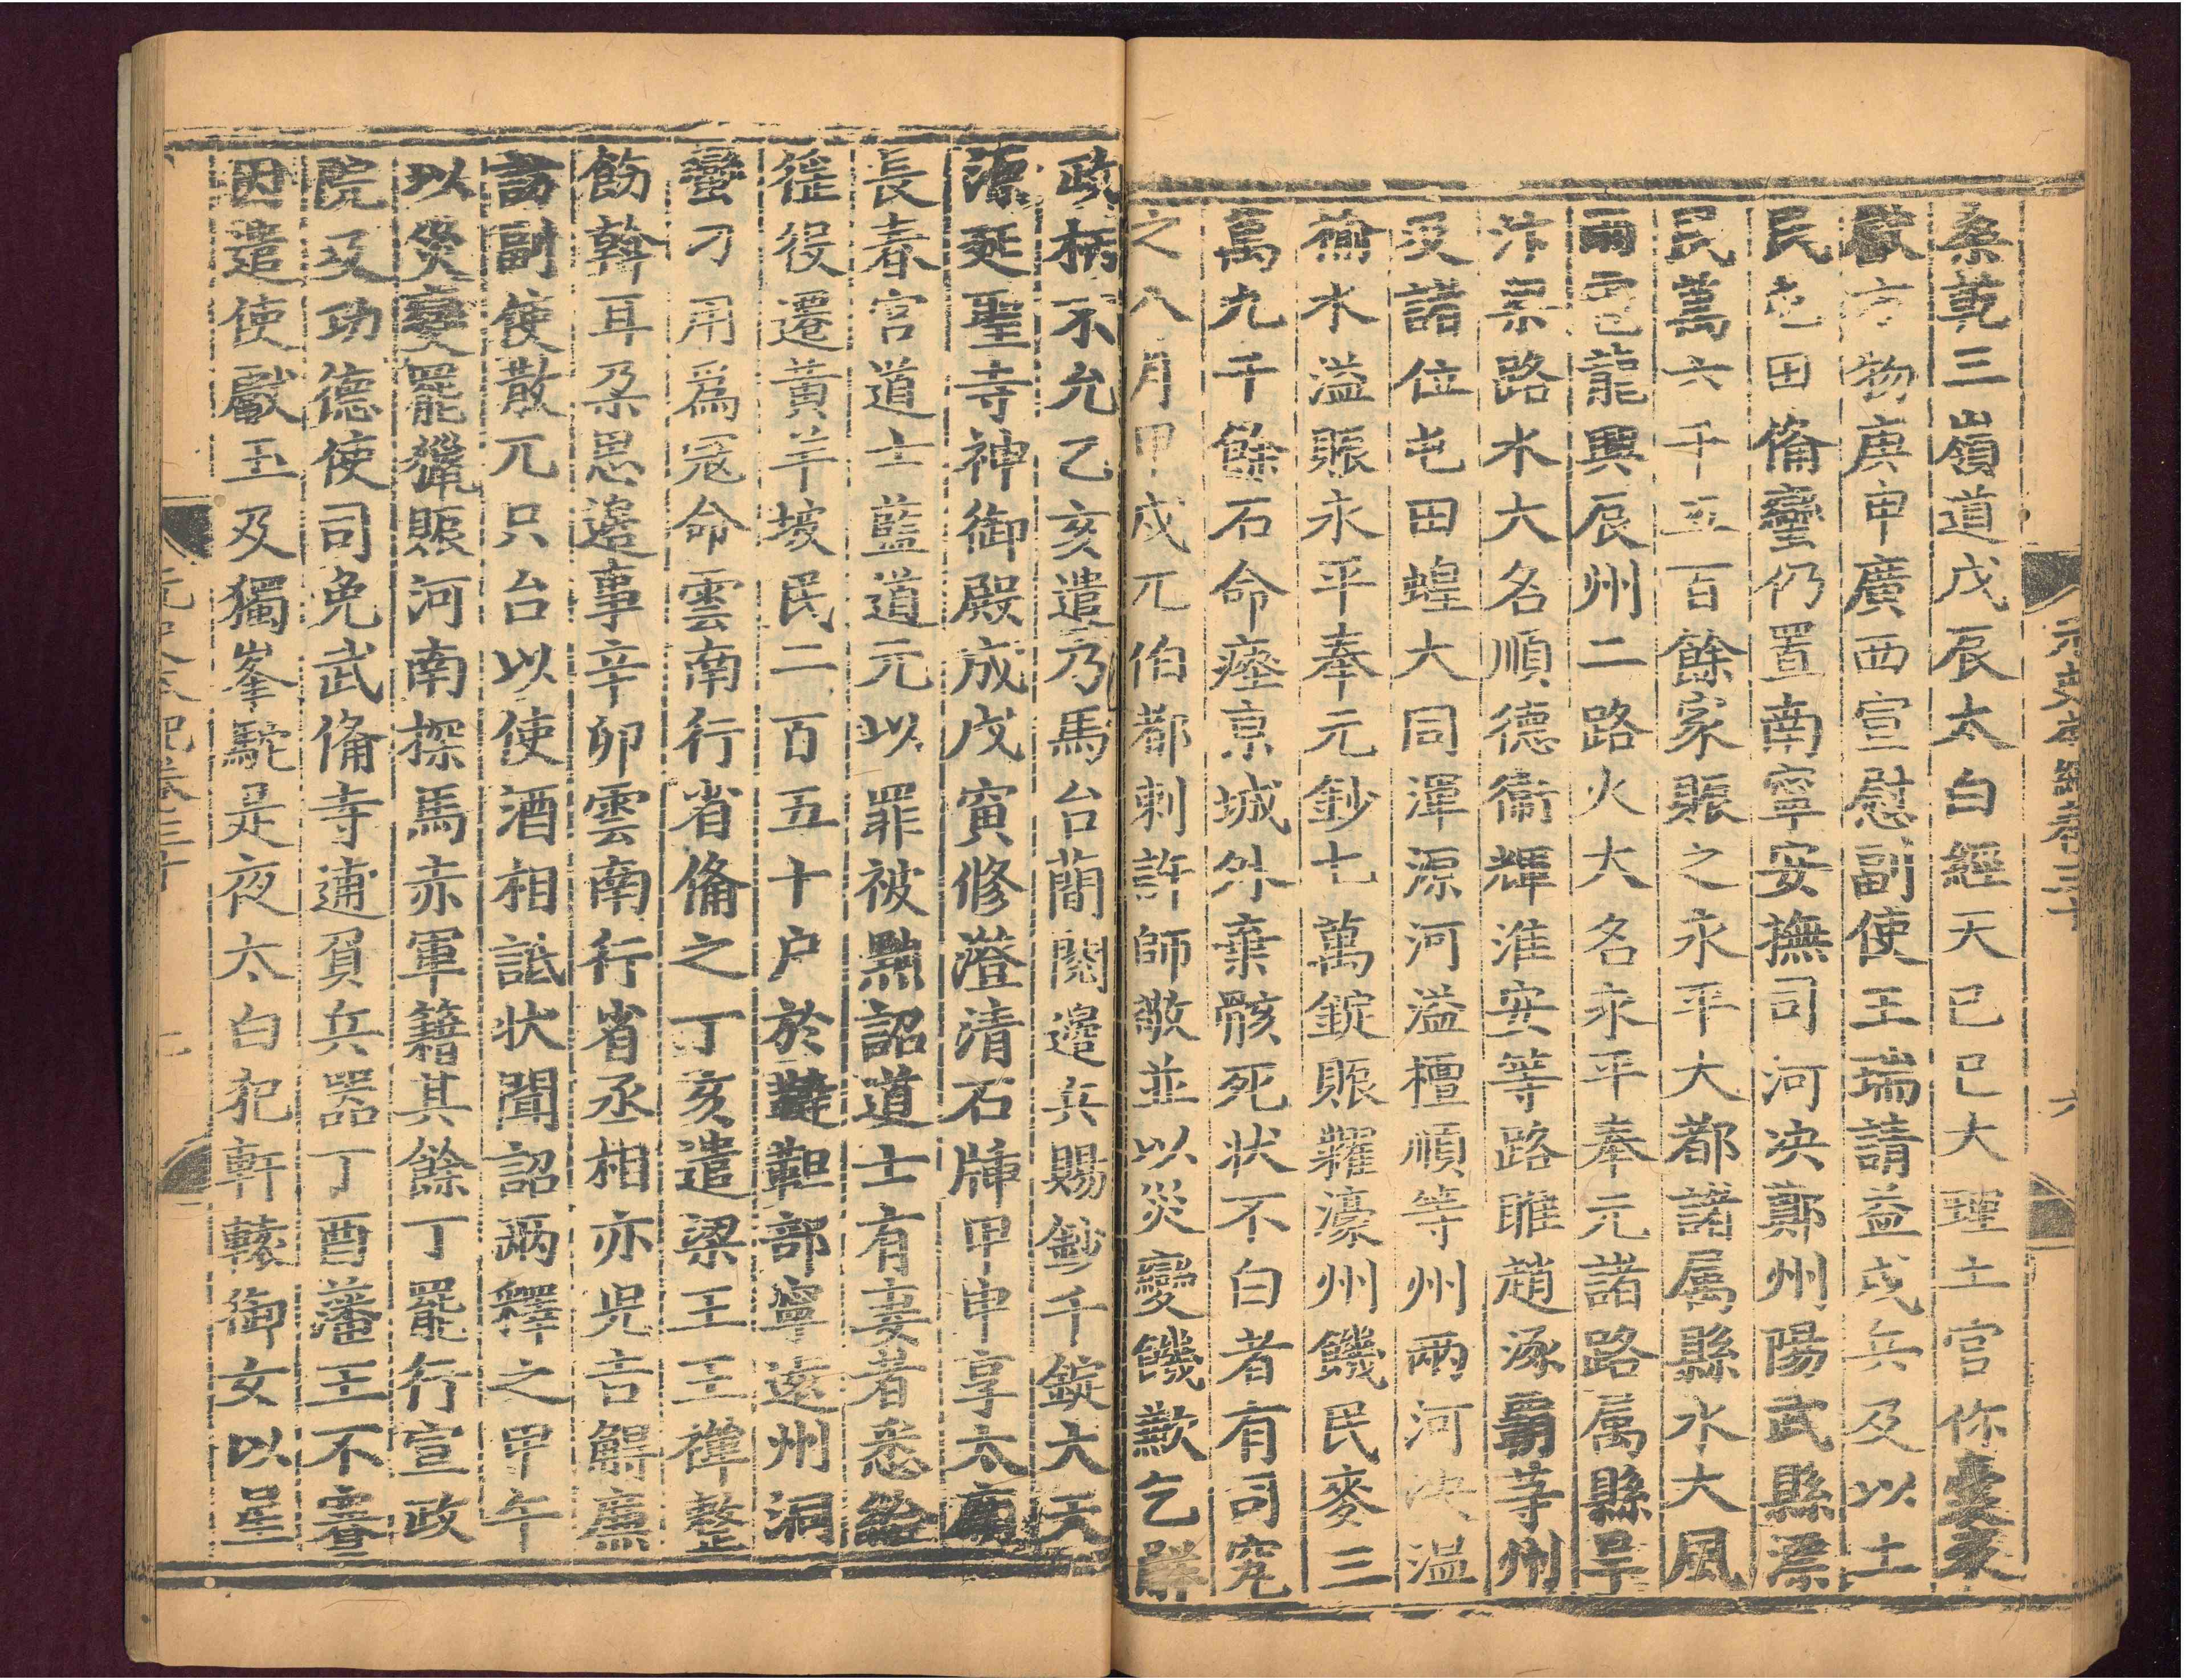 元史本紀卷三十
六
桑乾三嶺道戊辰太白經天己巳大理土官你囊來
獻方物庚申廣西宣慰副使王瑞請益戍兵及以土
民屯田俻蠻仍置南寧安撫司河决鄭州陽武縣漂
民萬六千五百餘家賑之永平大都諸属縣水大風
雨雹龍興辰州二路火大名永平奉元諸路属縣旱
汴梁路水大名順德衛輝淮安等路睢趙涿霸等州
及諸位屯田蝗大同渾源河溢檀順等州兩河决温
榆水溢賑永平奉元鈔七萬錠賑糶濠州饑民麥三
萬九千餘石命瘞京城外棄骸死状不白者有司究
之八月甲戌兀伯都剌許師敬並以災變饑歉乞觧
政柄不允乙亥遣乃馬台蕳閲邉兵賜鈔千錠大天
源延聖寺神御殿成戊寅修澄清石牐甲申享太廟
長春宮道士藍道元以罪被黜詔道士有妻者悉給
徭役遷黃羊坡民二百五十户於韃靼部寧逺州洞
蠻刁用爲冦命雲南行省俻之丁亥遣梁王王禪整
飭斡耳朶思邉事辛卯雲南行省丞相亦兒吉䚟廉
訪副使散兀只台以使酒相詆状聞詔兩釋之甲午
以災變罷獵賑河南探馬赤軍籍其餘丁罷行宣政
院及功德使司免武俻寺逋負兵器丁酉藩王不賽
因遣使獻玉及獨峯駝是夜太白犯軒轅御女以星
元史本紀卷三十